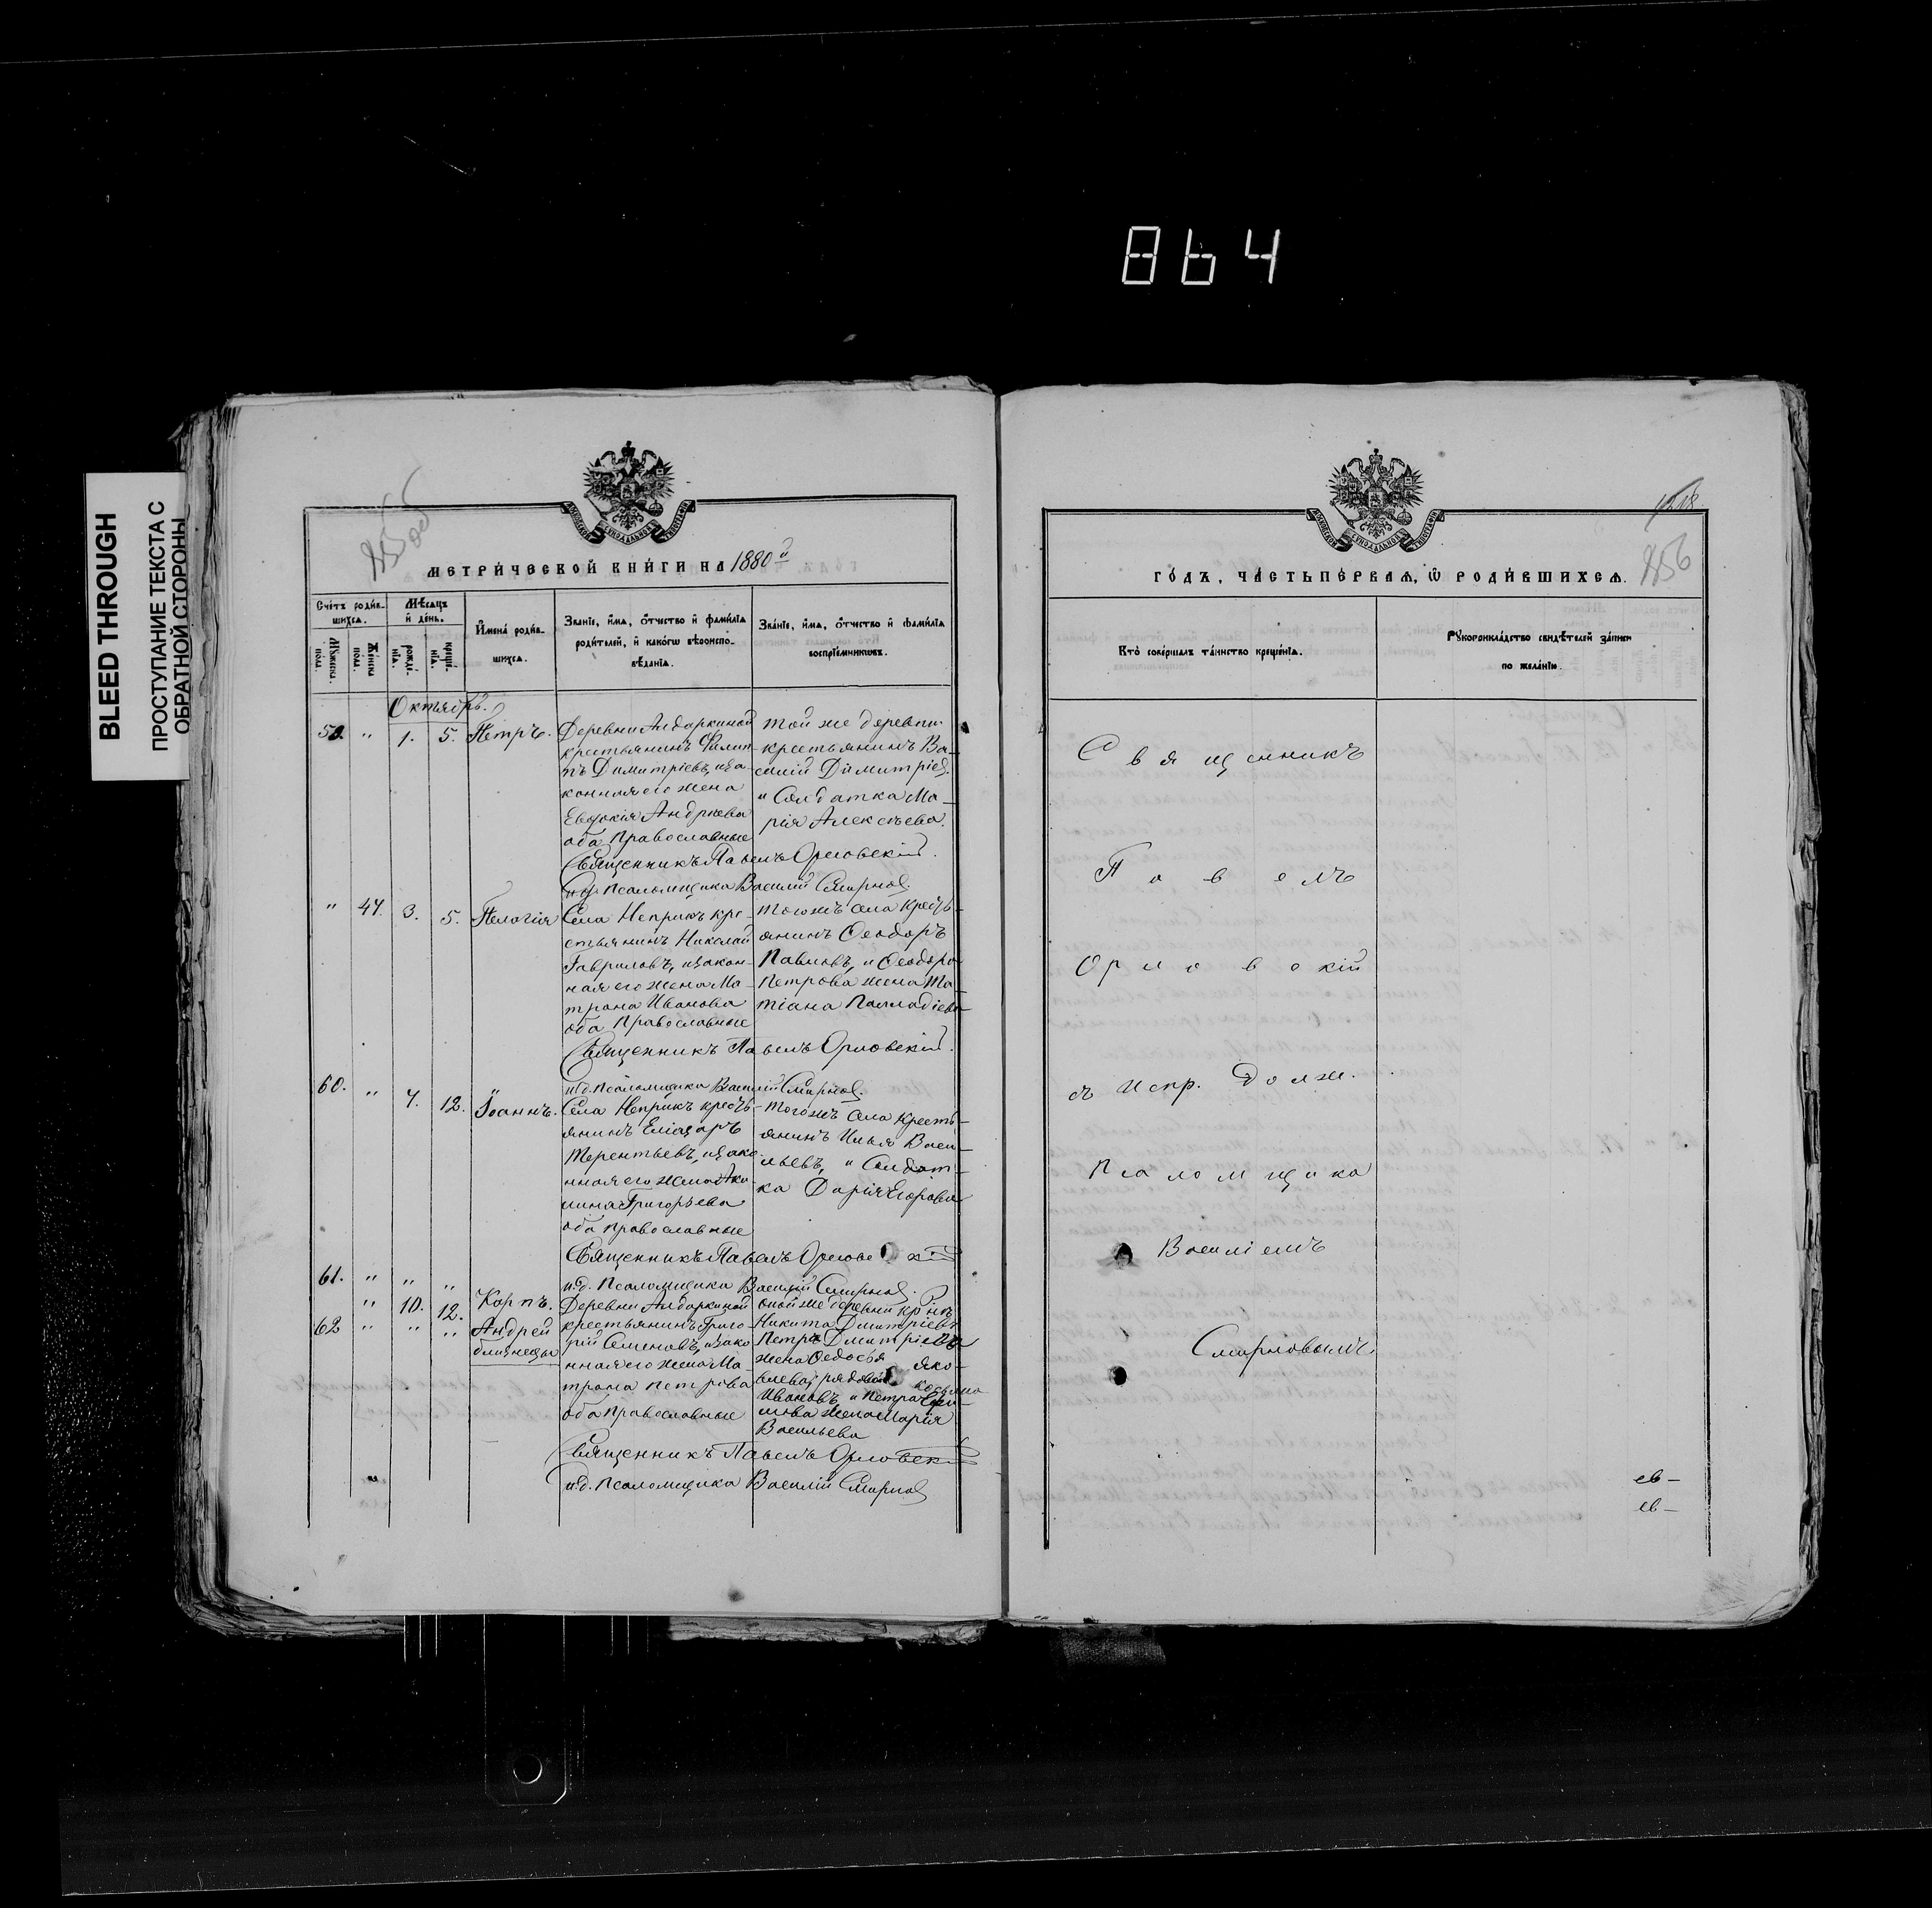 864
BLEED THROUGH
ПРОСТУПАНИЕ ТЕКСТА С
ОБРАТНОЙ СТОРОНЫ
МЕТРИ́ЧЕСКОЙ КНИ́ГИ НА 1880й
Сче́тъ роди́в-
шихсѧ.
Мꙋ́жеска пола.
Же́нска пола.
Мѣ́сѧцъ
и҆ де́нь.
рожде́-
нїѧ.
креще́-
нїѧ.
И҆мена̀ роди́в-
шихсѧ.
Зва́нїе, и҆́мѧ, ѻ҆́тчество и҆ фамѝлїа
роди́телей, и҆ како́гѡ вѣроисповѣ-
вѣ́данїѧ.
Зва́нїе, и҆́мѧ, ѻ҆́тчество и҆ фамѝлїа
воспрїе́мникѡвъ.
Октябрь.
" 1. 5. Петръ.
Деревни Алдаркиной
крестьянинъ Филип-
пъ Димитріевъ, и за-
конная его жена
Евдокія Андреева
оба Православные
той же деревни
крестьянинъ Ва-
силій Димитріев.
и Солдатка Ма-
рія Алексѣева.
Священникъ Павелъ Орловскій.
и.д. Псаломщика Василій Смирнов.
" 47. 3. 5. Пелагія
Села Неприкъ кре-
стьянинъ Николай
Гавриловъ, и закон-
ная его жена Ма-
трона Иванова
оба Православные
тогожъ села Кресть-
янинъ Ѳеодоръ
Павловъ, и Ѳеодора
Петрова жена Та-
тіана Палладіева
Священникъ Павелъ Орловскій.
и.д. Псаломщика Василій Смирнов.
60. " 7. 12. Іоаннъ.
Села Неприкъ кресть-
янинъ Еліазаръ
Терентьевъ, и зако-
нная его жена Аку-
лина Григорьева
оба православные
тогожъ села Кресть-
янинъ Илья Васи-
льевъ, и Солдат-
ка Дарія Егорова
Священникъ Павелъ
и.д. Псаломщика Василій Смирнов.
61. " " "
" 10. 12. Карпъ.
62 " " " Андрей
близнецы
Деревни Алдаркиной
крестьянинъ Григо-
рій Семеновъ, и зако-
нная его жена Ма-
трона Петрова
оба Православные
оной же деревни
Никита Димитріевъ
Петра Димитріева
жена Ѳедосья Яко-
влева, рядовой
Ивановъ, и Петра
жена Марія
Васильева
Священникъ Павелъ Орловскій
и.д. Псаломщика Василій Смирнов
856
ГО́ДЪ, ЧА́СТЬ ПЕ́РВАѦ, Ѽ РОДИ́ВШИХСѦ.
Кто̀ соверша́лъ та́инство креще́нїѧ.
Рꙋкоприкла́дство свидѣ́телей за́писи
по жела́нїю.
Священникъ
Павелъ
Орловскій
съ испр. долж.
Псаломщика
Василіемъ
Смирновымъ.
ев-
ев-